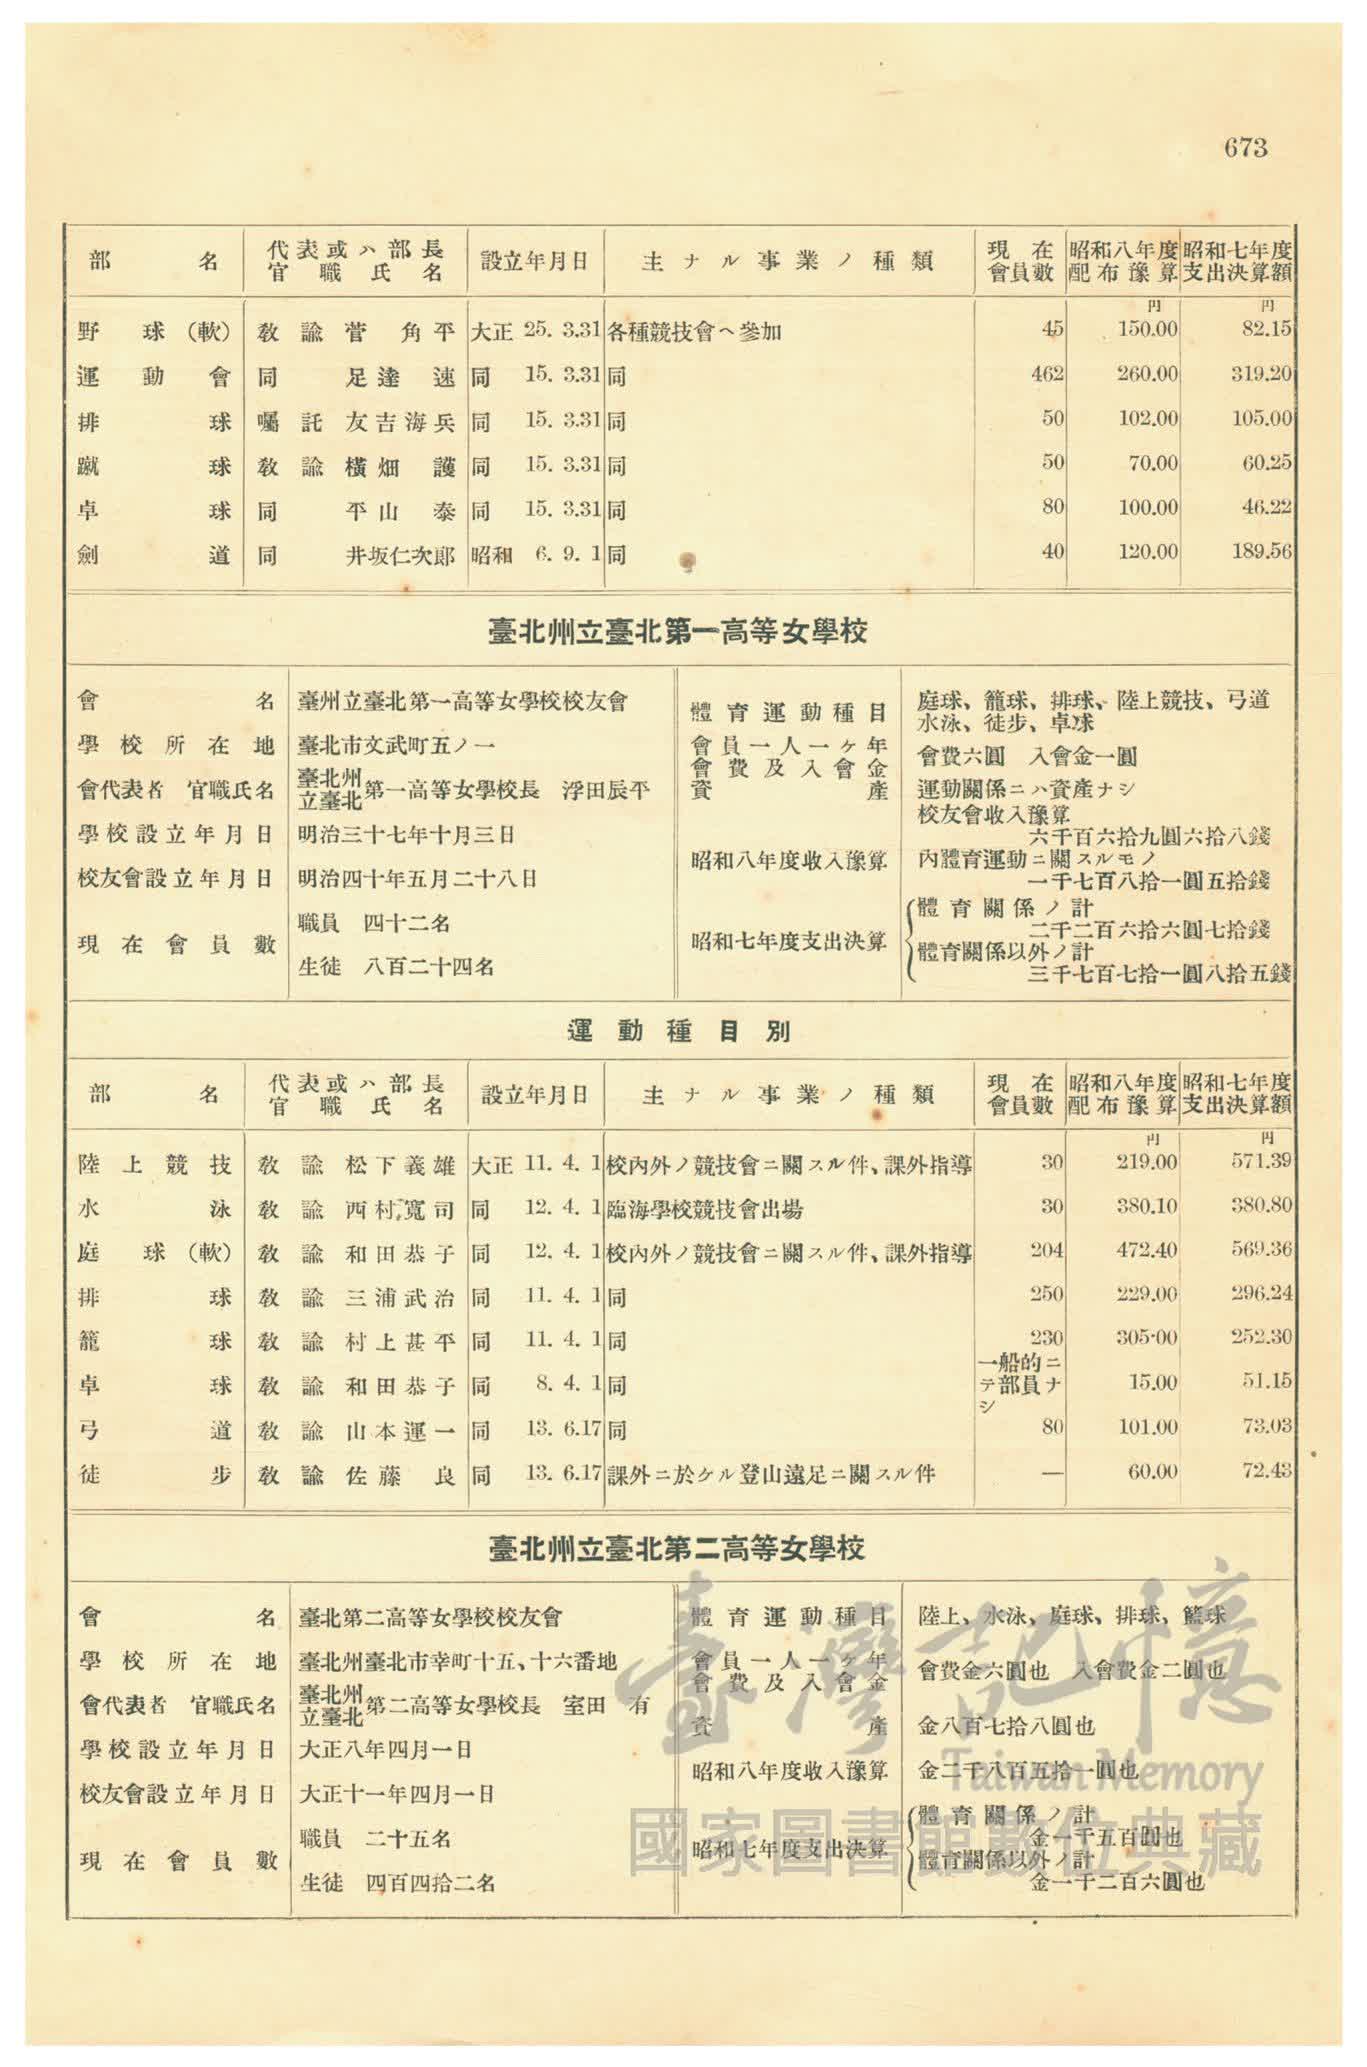 673
部名 代表或ハ部長官職氏名 設立年月日 主ナル事業ノ種類 現在會員數 昭和八年度配布豫算 昭和七年度支出決算額
円 円
野球(軟) 敎諭 菅角平 大正 25. 3.31 各種競技會ヘ參加 45 150.00 82.15
運動會 同 足達速 同 15. 3.31 同 462 260.00 319.20
排球 囑託 友吉海兵 同 15. 3.31 同 50 102.00 105.00
蹴球 敎諭 橫畑護 同 15. 3.31 同 50 70.00 60.25
卓球 同 平山泰 同 15. 3.31 同 80 100.00 46.22
劍道 同 井坂仁次郞 昭和 6. 9. 1 同 40 120.00 189.56
臺北州立臺北第一高等女學校
會名 臺州立臺北第一高等女學校校友會
學校所在地 臺北市文武町五ノ一
會代表者 官職氏名 臺北州立臺北第一高等女學校長 浮田辰平
學校設立年月日 明治三十七年十月三日
校友會設立年月日 明治四十年五月二十八日
現在會員數 職員 四十二名
生徒 八百二十四名
體育運動種目 庭球、籠球、排球、陸上競技、弓道
水泳、徒步、卓球
會員一人一ヶ年會費及入會金 會費六圓 入會金一圓
資產 運動關係ニハ資產ナシ
昭和八年度收入豫算 校友會收入豫算
六千百六拾九圓六拾八錢
內體育運動ニ關スルモノ
一千七百八拾一圓五拾錢
昭和七年度支出決算 體育關係ノ計
二千二百六拾六圓七拾錢
體育關係以外ノ計
三千七百七拾一圓八拾五錢
運動種目別
部名 代表或ハ部長官職氏名 設立年月日 主ナル事業ノ種類 現在會員數 昭和八年度配布豫算 昭和七年度支出決算額
円 円
陸上競技 敎諭 松下義雄 大正 11. 4. 1 校內外ノ競技會ニ關スル件、課外指導 30 219.00 571.39
水泳 敎諭 西村寬司 同 12. 4. 1 臨海學校競技會出場 30 380.10 380.80
庭球(軟) 敎諭 和田恭子 同 12. 4. 1 校內外ノ競技會ニ關スル件、課外指導 204 472.40 569.36
排球 敎諭 三浦武治 同 11. 4. 1 同 250 229.00 296.24
籠球 敎諭 村上甚平 同 11. 4. 1 同 230 305·00 252.30
卓球 敎諭 和田恭子 同 8. 4. 1 同 一船的ニテ部員ナシ 15.00 51.15
弓道 敎諭 山本運一 同 13. 6.17 同 80 101.00 73.03
徒步 敎諭 佐藤良 同 13. 6.17 課外ニ於ケル登山遠足ニ關スル件 — 60.00 72.43
臺北州立臺北第二高等女學校
會名 臺北第二高等女學校校友會
學校所在地 臺北州臺北市幸町十五、十六番地
會代表者 官職氏名 臺北州立臺北第二高等女學校長 室田有
學校設立年月日 大正八年四月一日
校友會設立年月日 大正十一年四月一日
現在會員數 職員 二十五名
生徒 四百四拾二名
體育運動種目 陸上、水泳、庭球、排球、籃球
會員一人一ヶ年會費及入會金 會費金六圓也 入會費金二圓也
資產 金八百七拾八圓也
昭和八年度收入豫算 金二千八百五拾一圓也
昭和七年度支出決算 體育關係ノ計
金一千五百圓也
體育關係以外ノ計
金一千二百六圓也
臺灣記憶
Taiwan Memory
國家圖書館數位典藏